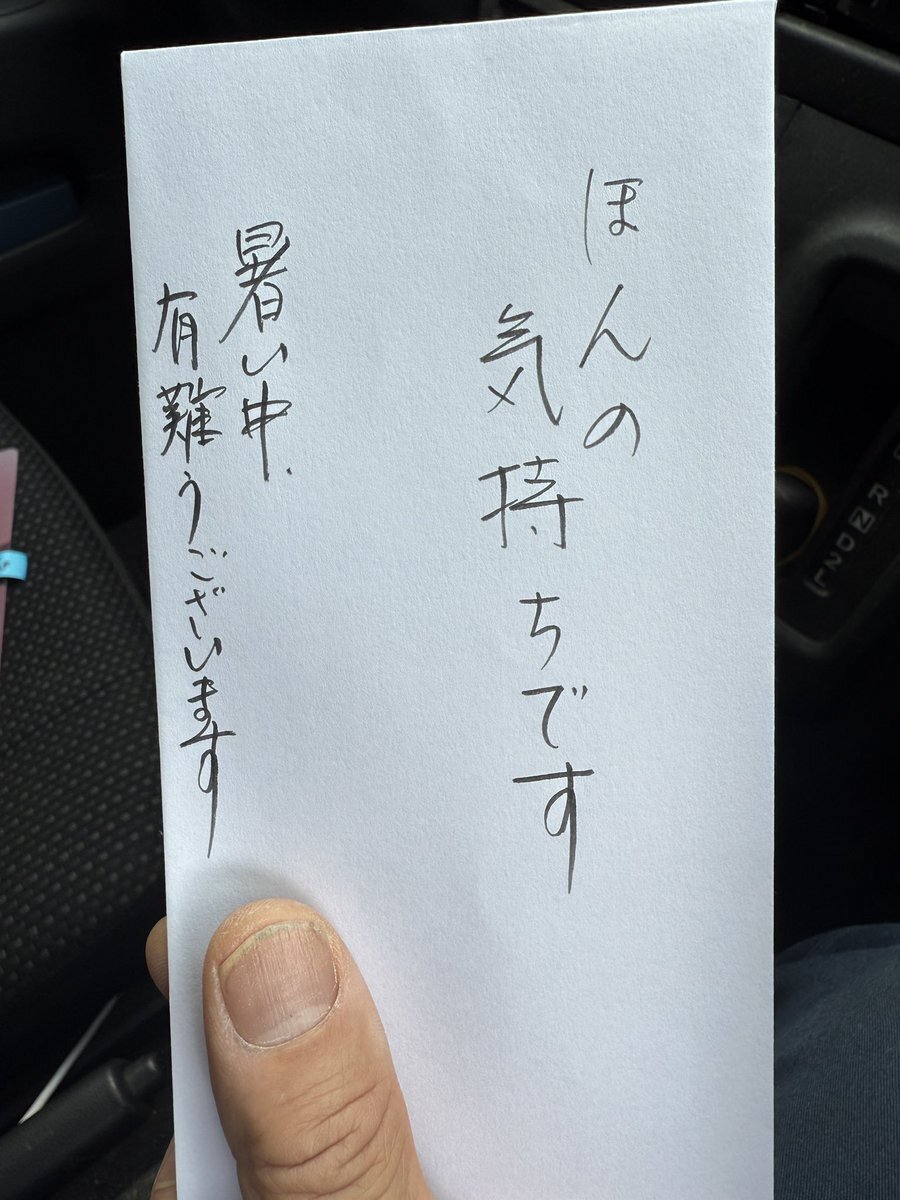 ほんの
気持ちです
暑い中、
有難うございます
R
N
D
2
L